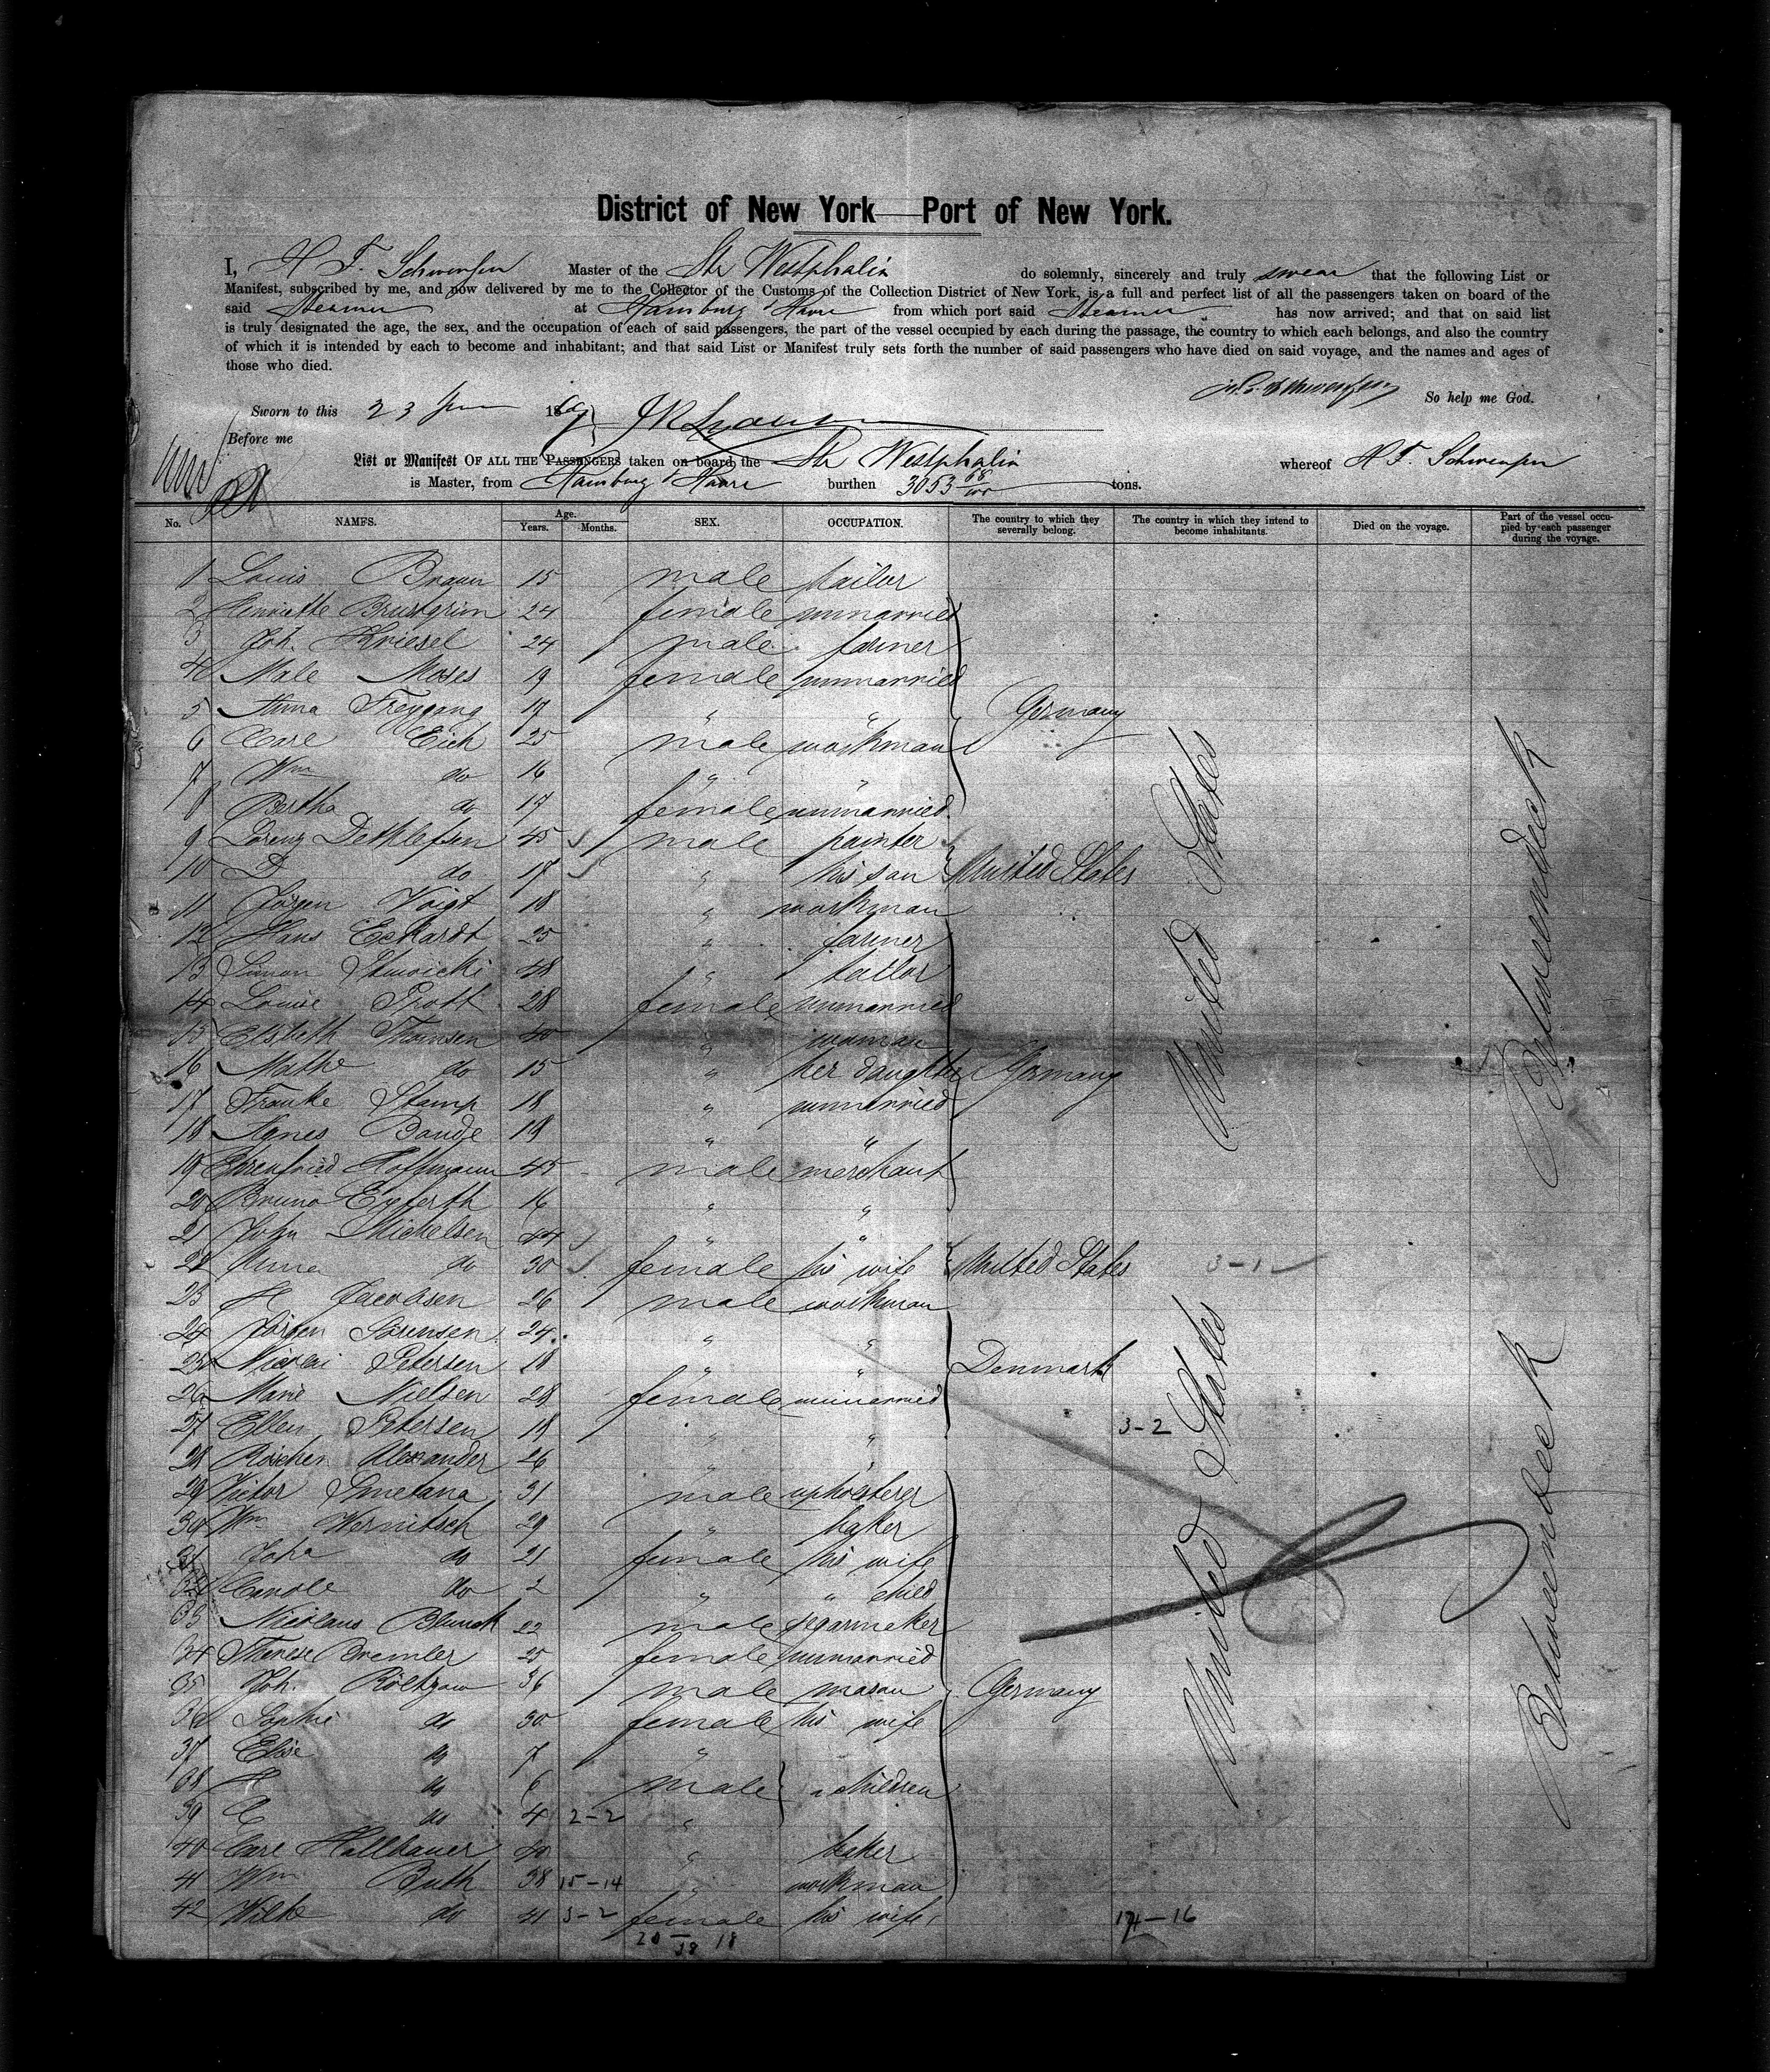 District of New York—Port of New York.
I, H F. Schwensen Master of the Str Westphalia do solemnly, sincerely and truly swear that the following List or
Manifest, subscribed by me, and now delivered by me to the Collector of the Customs of the Collection District of New York, is a full and perfect list of all the passengers taken on board of the
said Steamer at Hamburg & Havre from which port said Steamer has now arrived; and that on said list
is truly designated the age, the sex, and the occupation of each of said passengers, the part of the vessel occupied by each during the passage, the country to which each belongs, and also the country
of which it is intended by each to become and inhabitant; and that said List or Manifest truly sets forth the number of said passengers who have died on said voyage, and the names and ages of
those who died.
So help me God.
Sworn to this 23 18
Before me
List or Manifest OF ALL THE PASSENGERS taken on board the Str Westphalia whereof H F. Schwensen
is Master, from Hamburg & Havre burthen 3053 68/100 tons.
No. NAMES. Age. Years. Months. SEX. OCCUPATION. The country to which they severally belong. The country in which they intend to become inhabitants. Died on the voyage. Part of the vessel occupied by each passenger during the voyage.
1 Louis Braun 15 male tailor
2 Henriette Brustgrim 24 female unmarried
3 Joh. Kriesel 24 male farmer
4 Male Moses 19 female unmarried
5 Anna Freygang 17 " " Germany
6 Carl Eich 25 male workman
7 Wm do 16 " "
8 Bertha do 17 female unmarried
9 Lorenz Dethlefsen 45 male painter
10 D do 17 " his son United States
11 Jörgen Voigt 18 " workman
12 Hans Eckardt 25 " farmer
13 Simon 48 " tailor
14 Louise Prott 28 female unmarried
15 Elsbeth Thomsen 40 " woman
16 Mathe do 15 " her daughter Germany
17 Frauke Stamp 18 " unmarried
18 Agnes Bandje 19 " "
19 Ehrenfried Hoffmann 45 male merchant
20 Bruno Eyferth 16 " "
21 John Mickelsen 44 " "
22 Anna do 30 female his wife United States 3-1
23 H Jacobsen 26 male workman
24 Jörgen Sörensen 24 " "
25 Nicolai Petersen 18 " " Denmark
26 Marie Nielsen 28 female unmarried
27 Ellen Petersen 19 " " 3-2
28 Röschen Alexander 26 " "
29 Victor Smetana 31 male upholsterer
30 Wm. Wernitsch 29 " baker
31 Joha do 21 female his wife
32 Carole do 2 " " child
33 Nicolaus Blunck 22 male segarmaker
34 Therese Bremler 25 female unmarried
35 Joh. Röltgow 36 male mason Germany
36 Sophie do 30 female his wife
37 Elise do 7 "
38 H do 6 male " children
39 C do 4 2-2 "
40 Carl Hallbauer 40 " baker
41 Wm Buth 38 15-14 " workman
42 Wilhe do 41 3-2 female his wife 17-16
20 — 38 18
United States
United States
Betweendeck
Betweendeck